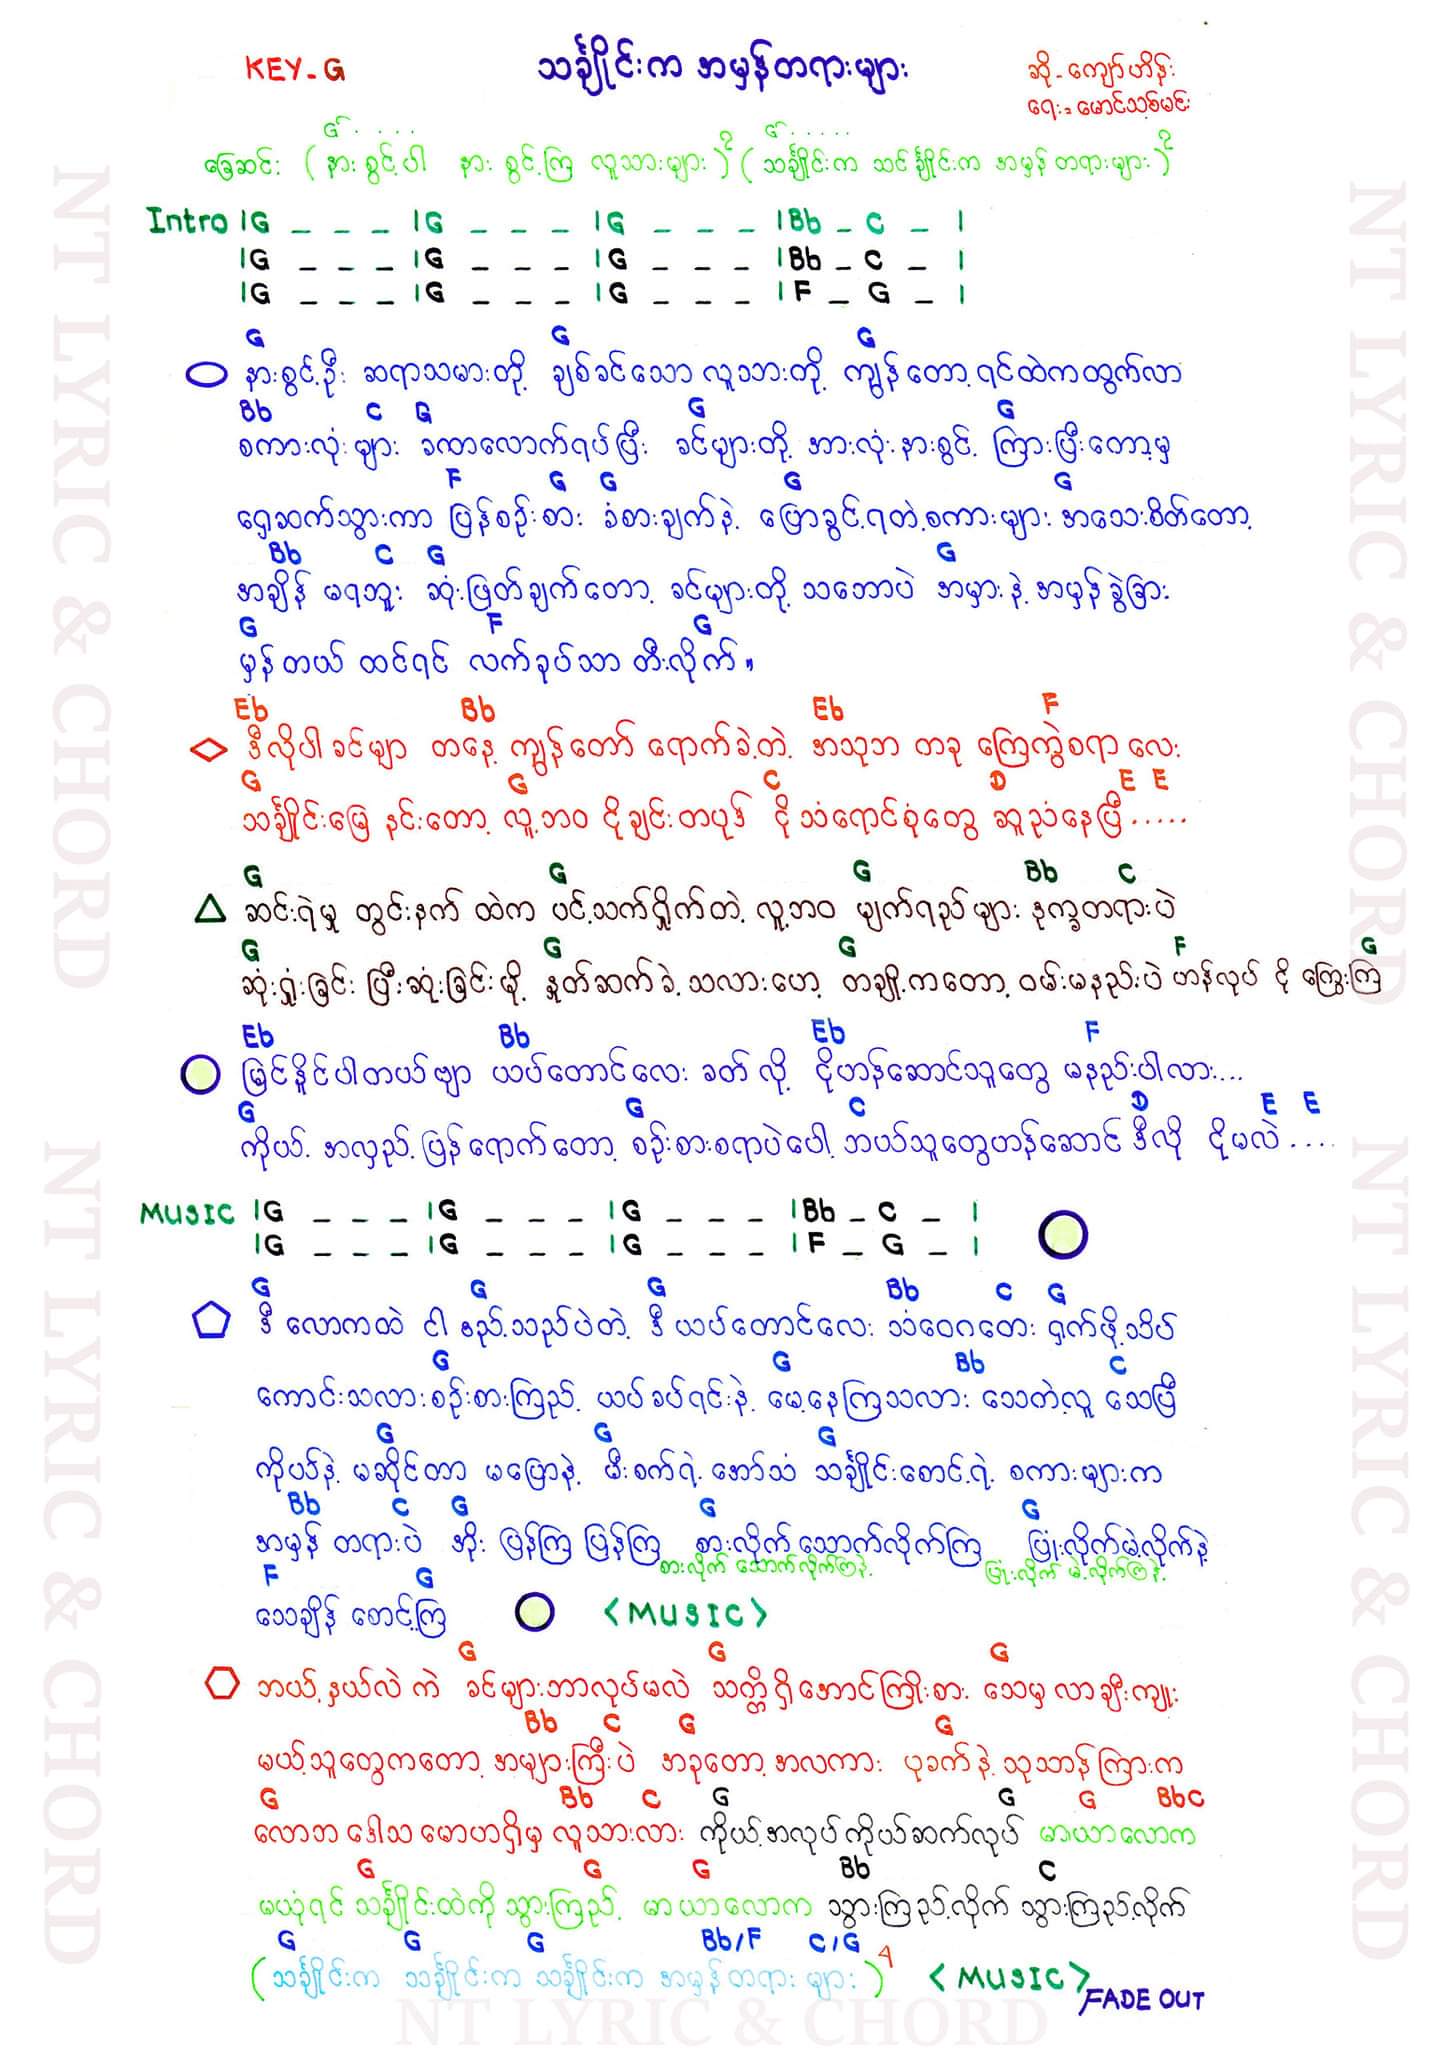 KEY - G
သင်္ချိုင်းက အမှန်တရားများ
ဆို - ကျော်ဟိန်း
ရေး - မောင်သစ်မင်း
G . . . . G . . . . .
ခြေဆင်း (နားစွင့်ပါ နားစွင့်ကြ လူသားများ)၂ (သင်္ချိုင်းက သင်္ချိုင်းက အမှန်တရားများ)၂
Intro |G _ _ _ |G _ _ _ |G _ _ _ |Bb _ C _ |
|G _ _ _ |G _ _ _ |G _ _ _ |Bb _ C _ |
|G _ _ _ |G _ _ _ |G _ _ _ |F _ G _ |
G G G
နားစွင့်ဦး ဆရာသမားတို့ ချစ်ခင်သော လူသားတို့ ကျွန်တော့ရင်ထဲကထွက်လာ
Bb C G G G
စကားလုံးများ ခဏလောက်ရပ်ပြီး ခင်များတို့ အားလုံးနားစွင့် ကြားပြီးတော့မှ
F G G G G
ရှေ့ဆက်သွားကာ ပြန်စဉ်းစား ခံစားချက်နဲ့ ပြောခွင့်ရတဲ့စကားများ အသေးစိတ်တော့
Bb C G G
အချိန် မရဘူး ဆုံးဖြတ်ချက်တော့ ခင်များတို့ သဘောပဲ အမှားနဲ့ အမှန်ခွဲခြား
G F G
မှန်တယ် ထင်ရင် လက်ခုပ်သာ တီးလိုက်။
Eb Bb Eb F
ဒီလိုပါခင်များ တနေ့ ကျွန်တော် ရောက်ခဲ့တဲ့ အသုဘ တခု ကြေကွဲစရာ လေး
G G C D E E
သင်္ချိုင်းမြေ နင်းတော့ လူ့ဘဝ ငိုချင်းတပုဒ် ငိုသံရောင်စုံတွေ ဆူညံနေပြီ.....
G G G Bb C
ဆင်းရဲမှု တွင်းနက် ထဲက ပင့်သက်ရှိုက်တဲ့ လူ့ဘဝ မျက်ရည်များ ဒုက္ခတရားပဲ
G G G F G
ဆုံးရှုံးခြင်း ပြီးဆုံးခြင်းမို့ နှုတ်ဆက်ခဲ့ သလားဟေ့ တချို့ကတော့ ဝမ်းမနည်းပဲ ဟန်လုပ် ငိုကြွေးကြ
Eb Bb Eb F
မြင်နိုင်ပါတယ်ဗျာ ယပ်တောင်လေး ခတ်လို့ ငိုဟန်ဆောင်သူတွေ မနည်းပါလား...
G G C D E E
ကိုယ့်အလှည့် ပြန်ရောက်တော့ စဉ်းစားစရာပဲပေါ့ ဘယ်သူတွေဟန်ဆောင် ဒီလို ငိုမလဲ....
MUSIC |G _ _ _ |G _ _ _ |G _ _ _ |Bb _ C _ |
|G _ _ _ |G _ _ _ |G _ _ _ |F _ G _ |
G G G Bb C G
ဒီ လောကထဲ ငါ ဧည့်သည်ပဲတဲ့ ဒီယပ်တောင်လေး သံဝေဂတေး ရှက်ဖို့သိပ်
G G Bb C
ကောင်းသလားစဉ်းစားကြည့် ယပ်ခပ်ရင်းနဲ့ မေ့နေကြသလား သေတဲ့လူ သေပြီ
G G G
ကိုယ်နဲ့ မဆိုင်တာ မပြောနဲ့ မီးစက်ရဲ့ အော်သံ သင်္ချိုင်းစောင့်ရဲ့ စကားများက
Bb C G G G
အမှန် တရားပဲ အိုး ပြန်ကြ ပြန်ကြ စားလိုက်သောက်လိုက်ကြ ပြုံးလိုက်မဲ့လိုက်နဲ့
စားလိုက် သောက်လိုက်ကြနဲ့ ပြုံးလိုက် မဲ့လိုက်ကြနဲ့
F G
သေချိန် စောင့်ကြ <MUSIC>
G G G
ဘယ့်နှယ်လဲ ကဲ ခင်များဘာလုပ်မလဲ သတ္တိရှိအောင်ကြိုးစား သေမှ လာချီးကျူး
Bb C G G
မယ့်သူတွေကတော့ အများကြီးပဲ အခုတော့ အလကား ပုခက်နဲ့ သုသာန်ကြားက
G Bb C G G G BbC
လောဘ ဒေါသ မောဟရှိမှ လူသားလား ကိုယ့်အလုပ်ကိုယ်ဆက်လုပ် မာယာလောက
G G G Bb C
မယုံရင် သင်္ချိုင်းထဲကို သွားကြည့် မာယာလောက သွားကြည့်လိုက် သွားကြည့်လိုက်
G G G Bb/F C/G
(သင်္ချိုင်းက သင်္ချိုင်းက သင်္ချိုင်းက အမှန်တရား များ)4 <MUSIC>
FADE OUT
NT LYRIC & CHORD
NT LYRIC & CHORD
NT LYRIC & CHORD
NT LYRIC & CHORD
NT LYRIC & CHORD